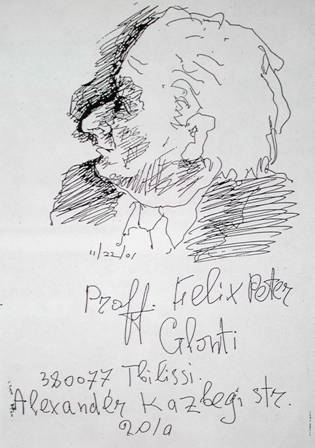 11/22/01
Proff. Felix Peter
Glonti
380077 Tbilissi.
Alexandér Kazbegi str.
20/a